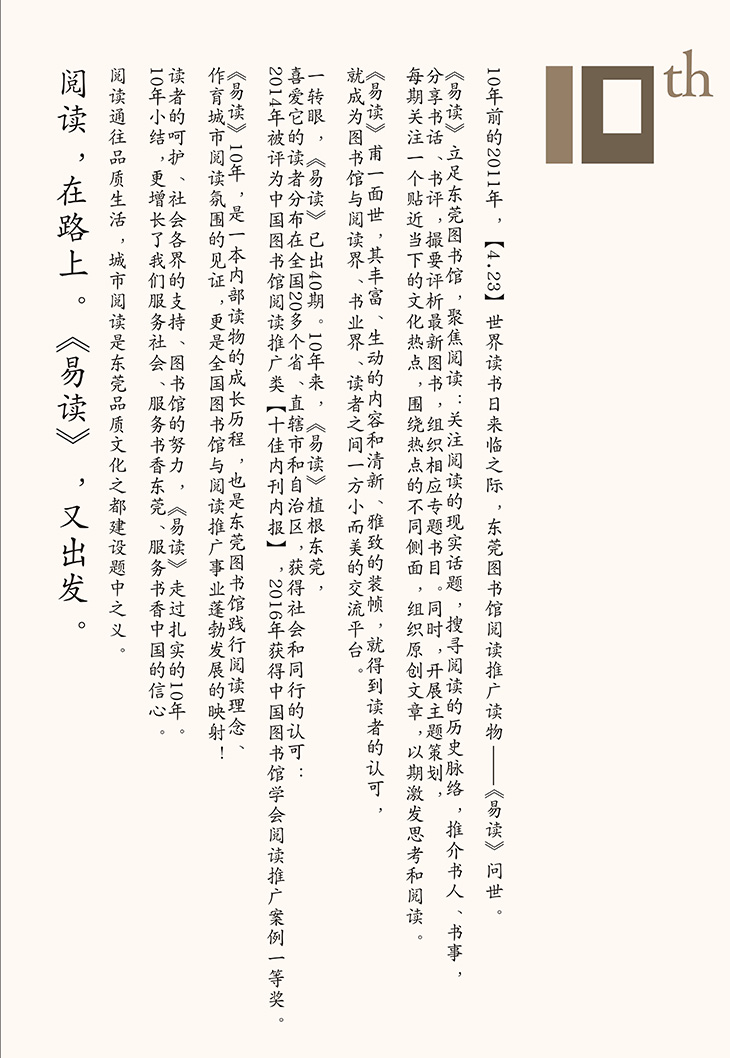 10th
10年前的2011年，【4·23】世界读书日来临之际，东莞图书馆阅读推广读物——《易读》问世。
《易读》立足东莞图书馆，聚焦阅读：关注阅读的现实话题，搜寻阅读的历史脉络，推介书人、书事，
分享书话、书评，撮要评析最新图书，组织相应专题书目。同时，开展主题策划，
每期关注一个贴近当下的文化热点，围绕热点的不同侧面，组织原创文章，以期激发思考和阅读。
《易读》甫一面世，其丰富、生动的内容和清新、雅致的装帧，就得到读者的认可，
就成为图书馆与阅读界、书业界、读者之间一方小而美的交流平台。
一转眼，《易读》已出40期。10年来，《易读》植根东莞，
喜爱它的读者分布在全国20多个省、直辖市和自治区，获得社会和同行的认可：
2014年被评为中国图书馆阅读推广类【十佳内刊内报】，2016年获得中国图书馆学会阅读推广案例一等奖。
《易读》10年，是一本内部读物的成长历程，也是东莞图书馆践行阅读理念、
作育城市阅读氛围的见证，更是全国图书馆与阅读推广事业蓬勃发展的映射！
读者的呵护、社会各界的支持、图书馆的努力，《易读》走过扎实的10年。
10年小结，更增长了我们服务社会、服务书香东莞、服务书香中国的信心。
阅读通往品质生活，城市阅读是东莞品质文化之都建设题中之义。
阅读，在路上。《易读》，又出发。